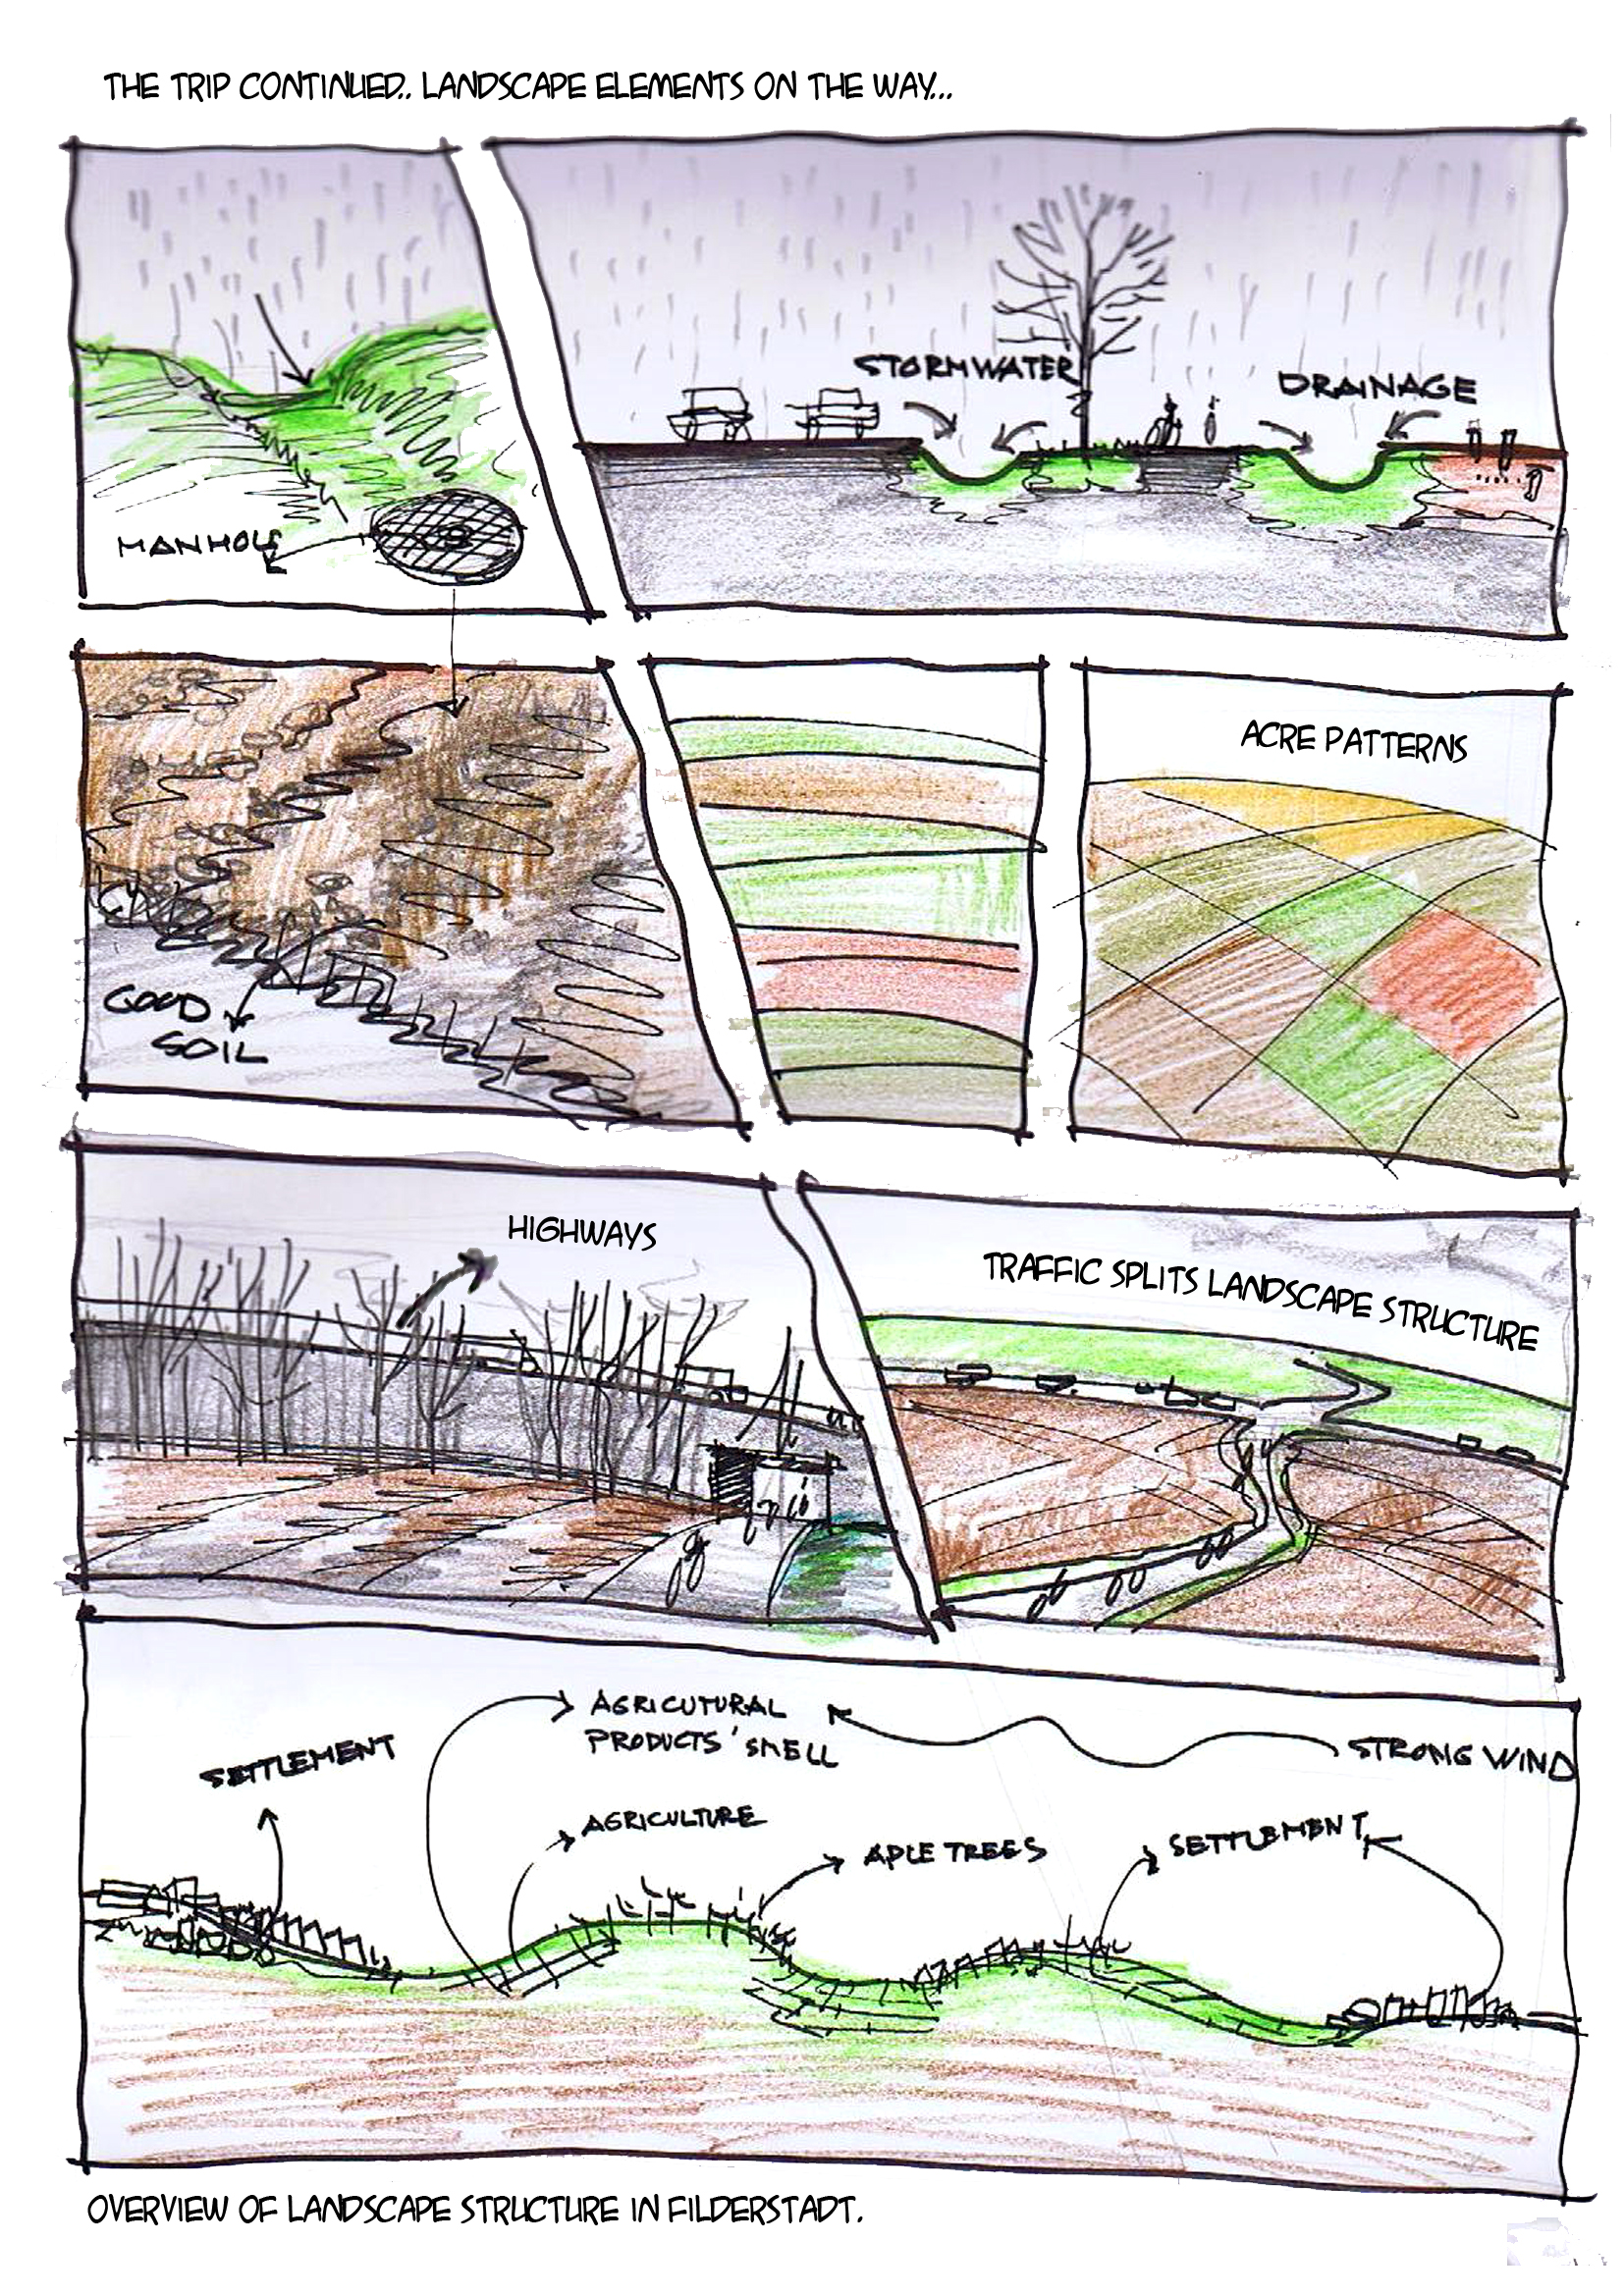 THE TRIP CONTINUED.. LANDSCAPE ELEMENTS ON THE WAY...
MANHOLE
STORMWATER
DRAINAGE
GOOD
SOIL
ACRE PATTERNS
HIGHWAYS
TRAFFIC SPLITS LANDSCAPE STRUCTURE
SETTLEMENT
AGRICUTURAL
PRODUCTS' SMELL
STRONG WIND
AGRICULTURE
APLE TREES
SETTLEMENT
OVERVIEW OF LANDSCAPE STRUCTURE IN FILDERSTADT.